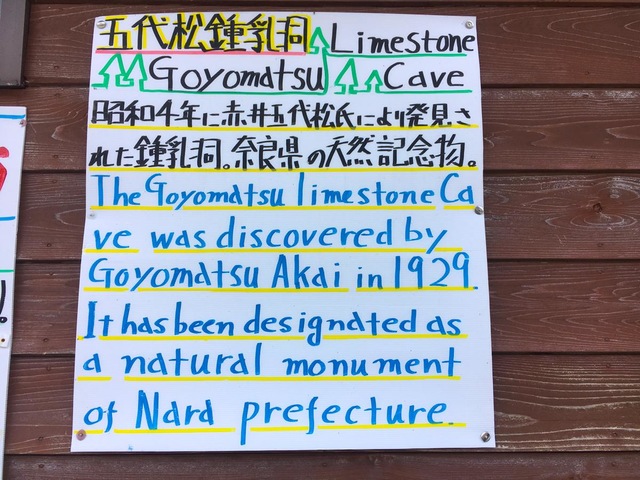 五代松鍾乳洞 Limestone
Goyomatsu Cave
昭和4年に赤井五代松氏により発見さ
れた鍾乳洞。奈良県の天然記念物。
The Goyomatsu limestone Ca
ve was discovered by
Goyomatsu Akai in 1929.
It has been designated as
a natural monument
of Nara prefecture.